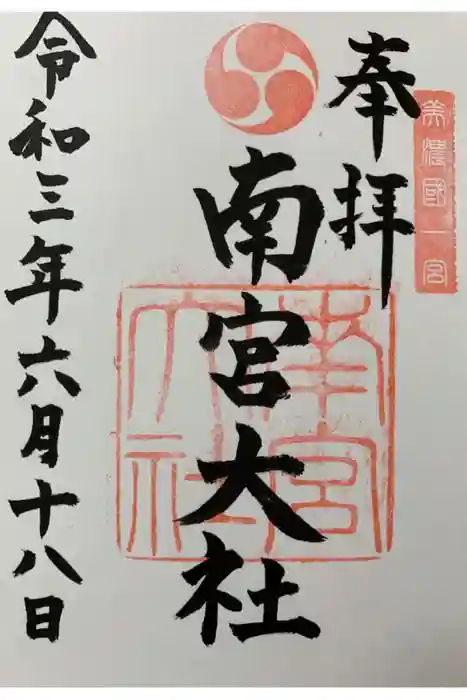 奉拝
美濃國一宮
南宮大社
南宮大社
令和三年六月十八日